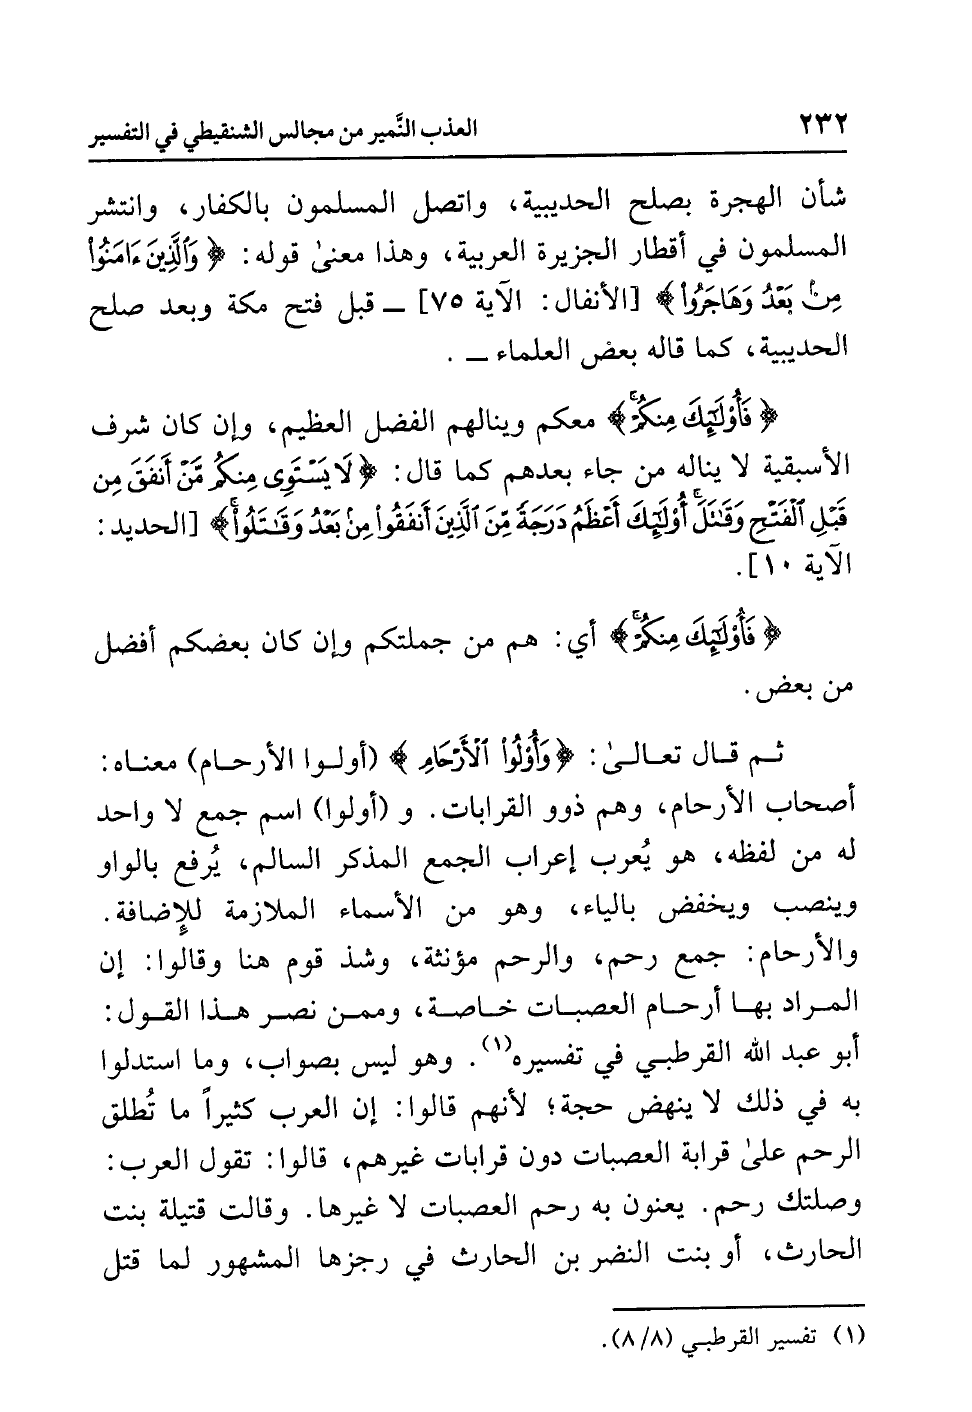 ٢٣٢ العذب النَّمير من مجالس الشنقيطي في التفسير
شأن الهجرة بصلح الحديبية، واتصل المسلمون بالكفار، وانتشر
المسلمون في أقطار الجزيرة العربية، وهذا معنىٰ قوله: ﴿ وَٱلَّذِينَ ءَامَنُوا۟
مِنۢ بَعْدُ وَهَاجَرُوا۟ ﴾ [الأنفال: الآية ٧٥] ــ قبل فتح مكة وبعد صلح
الحديبية، كما قاله بعض العلماء ــ .
﴿ فَأُو۟لَٰٓئِكَ مِنكُمْ ۚ ﴾ معكم وينالهم الفضل العظيم، وإن كان شرف
الأسبقية لا يناله من جاء بعدهم كما قال: ﴿ لَا يَسْتَوِى مِنكُم مَّنْ أَنفَقَ مِن
قَبْلِ ٱلْفَتْحِ وَقَٰتَلَ ۚ أُو۟لَٰٓئِكَ أَعْظَمُ دَرَجَةً مِّنَ ٱلَّذِينَ أَنفَقُوا۟ مِنۢ بَعْدُ وَقَٰتَلُوا۟ ۚ ﴾ [الحديد:
الآية ١٠].
﴿ فَأُو۟لَٰٓئِكَ مِنكُمْ ۚ ﴾ أي: هم من جملتكم وإن كان بعضكم أفضل
من بعض.
ثـم قـال تعـالـىٰ: ﴿ وَأُو۟لُوا۟ ٱلْأَرْحَامِ ﴾ (أولـوا الأرحـام) معنـاه:
أصحاب الأرحام، وهم ذوو القرابات. و (أولوا) اسم جمع لا واحد
له من لفظه، هو يُعرب إعراب الجمع المذكر السالم، يُرفع بالواو
وينصب ويخفض بالياء، وهو من الأسماء الملازمة للإضافة.
والأرحام: جمع رحم، والرحم مؤنثة، وشذ قوم هنا وقالوا: إن
المـراد بهـا أرحـام العصبـات خـاصـة، وممـن نصـر هـذا القـول:
أبو عبد الله القرطبـي في تفسيره(١). وهو ليس بصواب، وما استدلوا
به في ذلك لا ينهض حجة؛ لأنهم قالوا: إن العرب كثيراً ما تُطلق
الرحم علىٰ قرابة العصبات دون قرابات غيرهم، قالوا: تقول العرب:
وصلتك رحم. يعنون به رحم العصبات لا غيرها. وقالت قتيلة بنت
الحارث، أو بنت النضر بن الحارث في رجزها المشهور لما قتل
(١) تفسير القرطبـي (٨/٨).